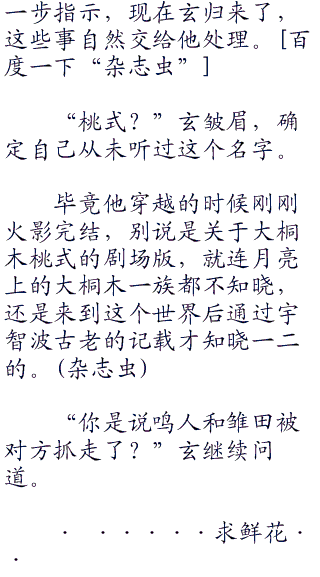 一步指示，现在玄归来了，
这些事自然交给他处理。[百
度一下“杂志虫”]
“桃式？”玄皱眉，确
定自己从未听过这个名字。
毕竟他穿越的时候刚刚
火影完结，别说是关于大桐
木桃式的剧场版，就连月亮
上的大桐木一族都不知晓，
还是来到这个世界后通过宇
智波古老的记载才知晓一二
的。(杂志虫)
“你是说鸣人和雏田被
对方抓走了？”玄继续问
道。
· · · · · ·求鲜花·
·